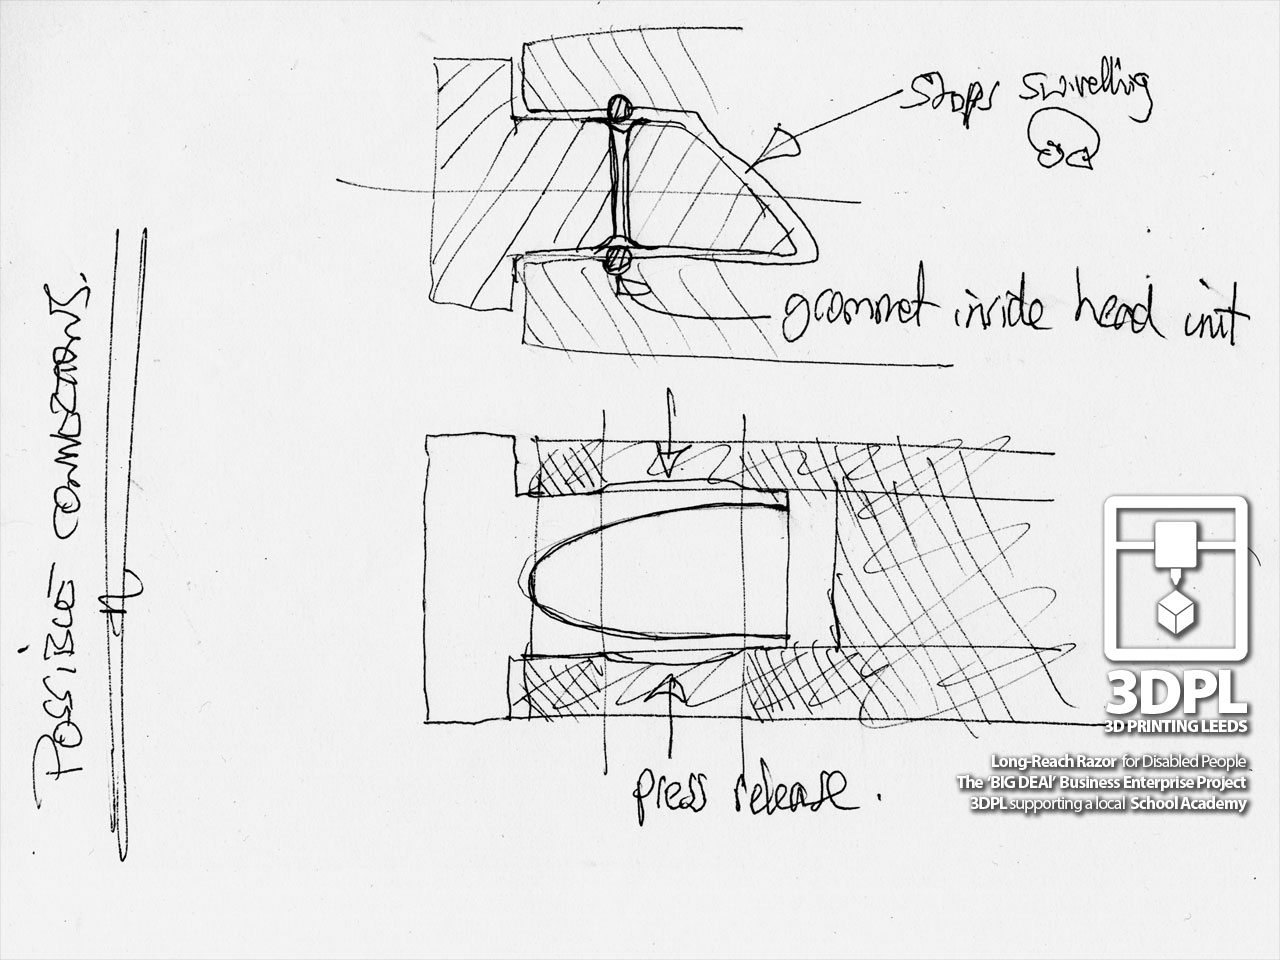 POSSIBLE CONNECTIONS.
stops swivelling
grommet inside head unit
press release.
3DPL
3D PRINTING LEEDS
Long-Reach Razor for Disabled People
The 'BIG DEAl' Business Enterprise Project
3DPL supporting a local School Academy